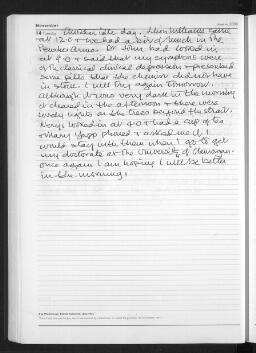 November
Another late day. Llion Williams came
at 12.0 & we had a bit of lunch in the
Penrhos Arms. Dr John had looked in
at 9.0 & said that my symptoms were
of classical clinical depression & prescribed
some pills that the chemist did not have
in store. I will try again tomorrow.
Although it was very dark in the morning
it cleared in the afternoon & there were
lovely lights on the trees beyond the strait.
looked in at 4.0 & had a cup of tea
& Mary Yapp phoned & asked me if I
would stay with them when I go to get
my doctorate at the University of Glamorgan.
Once again I am hoping I will be better
in the morning.